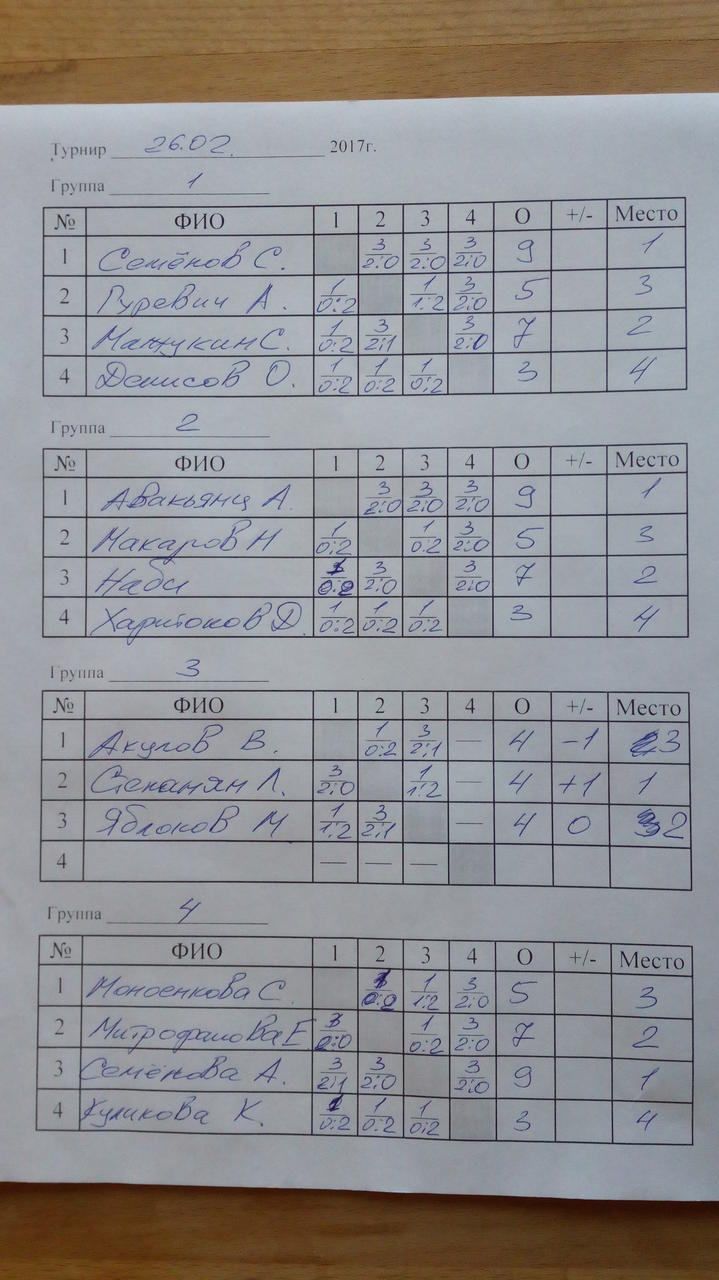 Турнир 26.02. 2017г.
Группа 1
№ ФИО 1 2 3 4 О +/- Место
1 Семёнов С. 3 2:0 3 2:0 3 2:0 9 1
2 Гуревич А. 1 0:2 1 1:2 3 2:0 5 3
3 Мажукин С. 1 0:2 3 2:1 3 2:0 7 2
4 Денисов О. 1 0:2 1 0:2 1 0:2 3 4
Группа 2
№ ФИО 1 2 3 4 О +/- Место
1 Авакьянц А. 3 2:0 3 2:0 3 2:0 9 1
2 Макаров Н 1 0:2 1 0:2 3 2:0 5 3
3 Наби 1 0:2 3 2:0 3 2:0 7 2
4 Харитонов Д. 1 0:2 1 0:2 1 0:2 3 4
Группа 3
№ ФИО 1 2 3 4 О +/- Место
1 Акулов В. 1 0:2 3 2:1 — 4 -1 3
2 Степанян Л. 3 2:0 1 1:2 — 4 +1 1
3 Яблоков М 1 1:2 3 2:1 — 4 0 2
4 — — —
Группа 4
№ ФИО 1 2 3 4 О +/- Место
1 С. 1 0:2 1 1:2 3 2:0 5 3
2 Митрофанова Е 3 2:0 1 0:2 3 2:0 7 2
3 Семёнова А. 3 2:1 3 2:0 3 2:0 9 1
4 Куликова К. 1 0:2 1 0:2 1 0:2 3 4